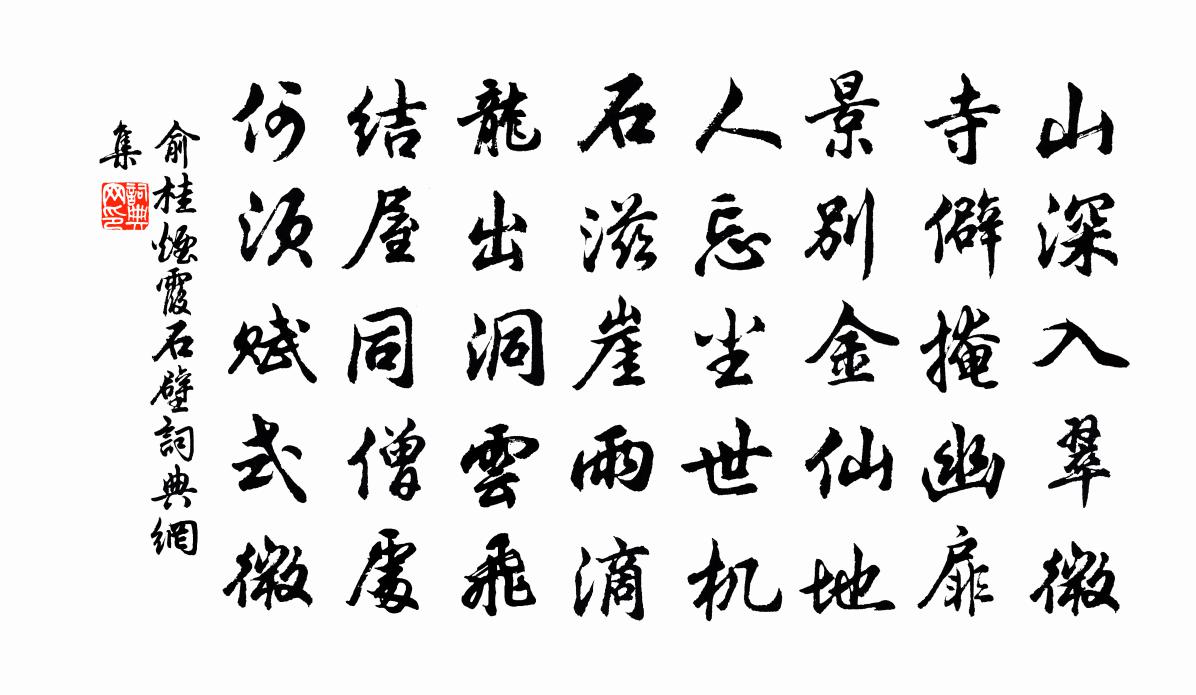 山深入翠微
寺僻掩幽扉
景别金仙地
人忘坐世机
石滋崖雨滴
龍出洞雲飛
结屋同僧處
何须赋式微
俞桂煙霞石壁詞典網
集
詞典網印